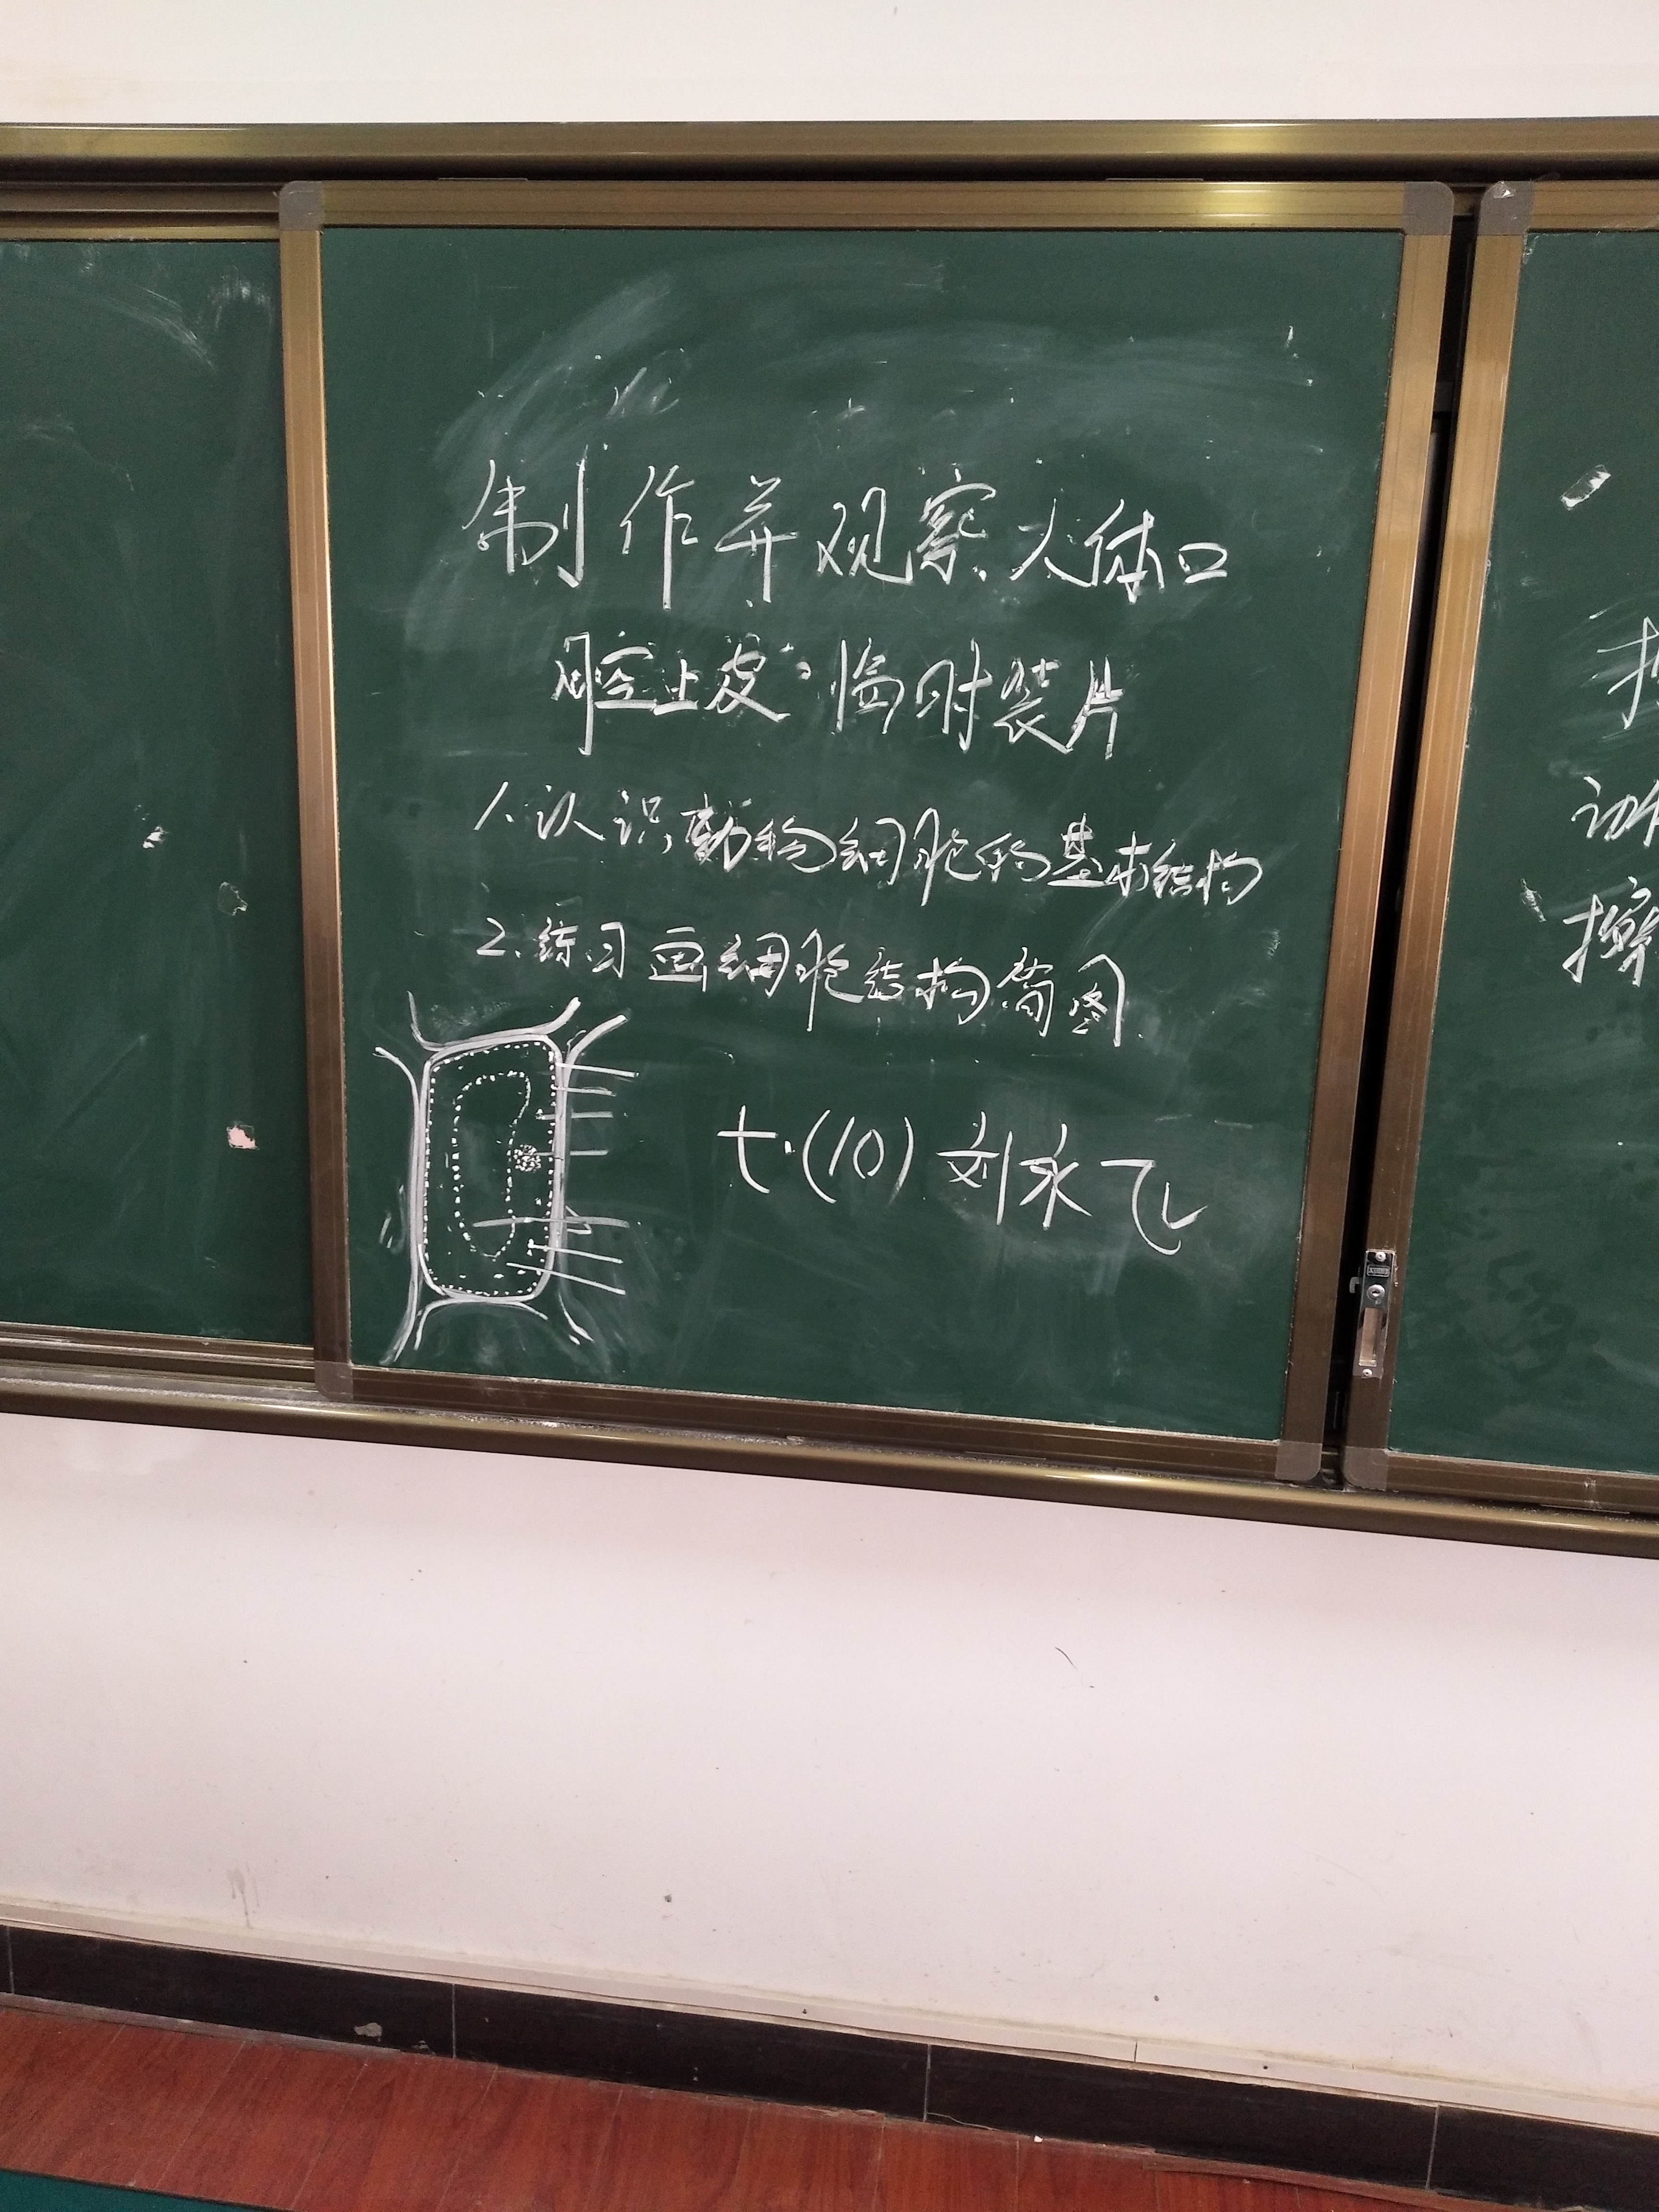 制作并观察人体口
腔上皮临时装片
1.认识动物细胞的基本结构
2.练习画细胞结构简图
七.(10)刘永飞